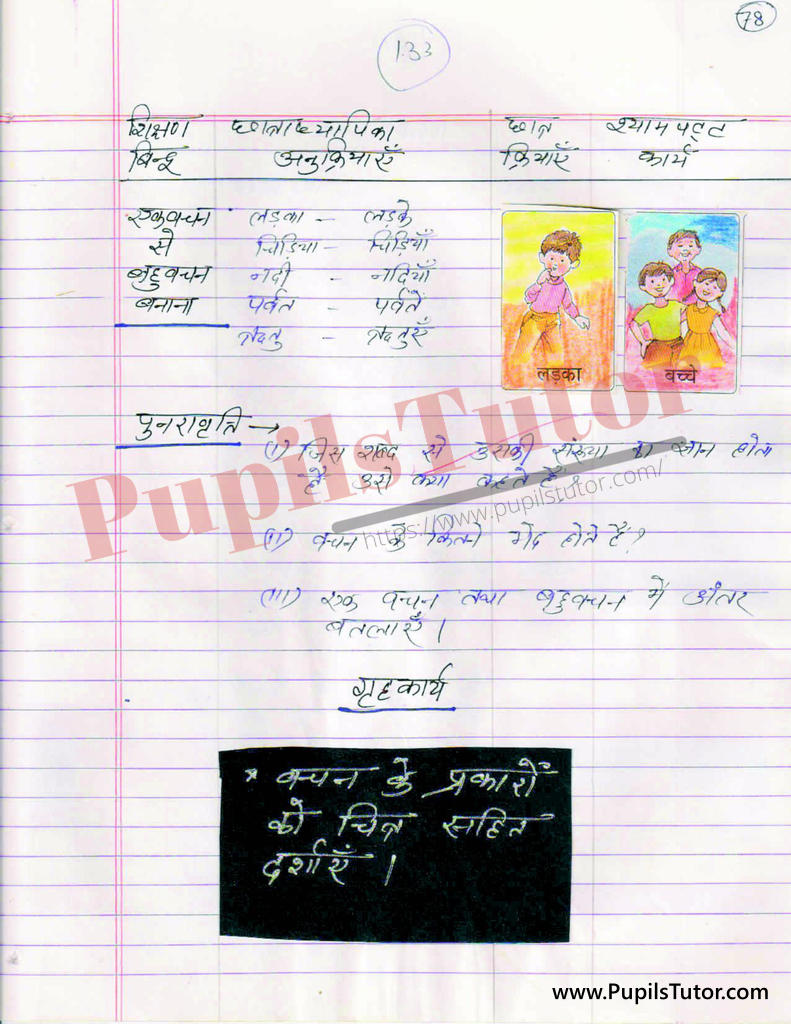 78
133
शिक्षण छात्राध्यापिका छात्र श्यामपट्ट
बिन्दू अनुक्रियाएँ क्रियाएँ कार्य
एकवचन लड़का – लड़के
से चिड़िया – चिड़ियाँ
बहुवचन नदी – नदियाँ
बनाना पर्वत – पर्वतें
ऋतु – ऋतुएँ
लड़का बच्चे
पुनरावृति →
(i) जिस शब्द से उसकी संख्या का ज्ञान होता
है उसे क्या कहते हैं?
PupilsTutor
https://www.pupilstutor.com/
(ii) वचन के कितने भेद होते हैं?
(iii) एक वचन तथा बहुवचन में अंतर
बतलाएँ।
गृहकार्य
* वचन के प्रकारों
को चित्र सहित
दर्शाएँ।
www.PupilsTutor.com